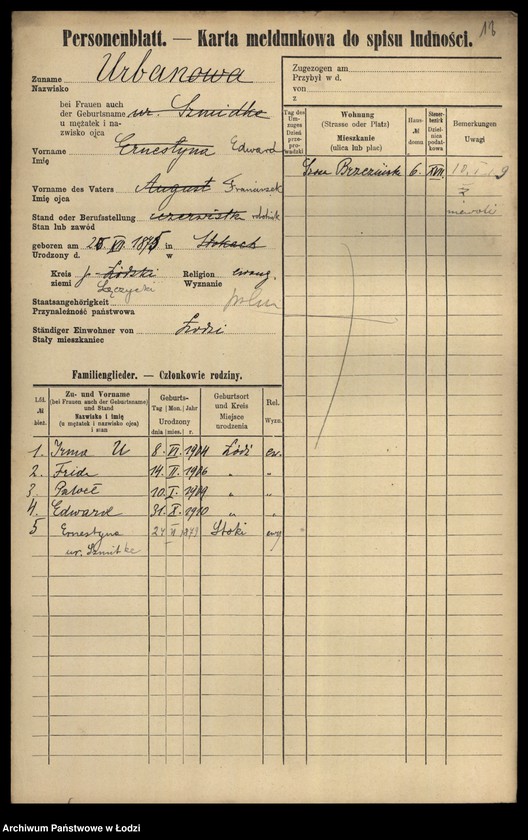 18
Personenblatt. — Karta meldunkowa do spisu ludności.
Zuname Urbanowa
Nazwisko
bei Frauen auch
der Geburtsname ur. Szmidke
u mężatek i na-
zwisko ojca
Vorname Ernestyna Edward
Imię
Vorname des Vaters August Franciszek
Imię ojca
Stand oder Berufsstellung robotnik
Stan lub zawód
geboren am 25. VII. 1875 in Stokach
Urodzony d. w
Kreis p. Łódzki Religion ewang.
ziemi Łęczycki Wyznanie
Staatsangehörigkeit
Przynależność państwowa
Ständiger Einwohner von Łodzi
Stały mieszkaniec
Zugezogen am
Przybył w d.
von
z
Tag des Um-
zuges
Dzień
prze-
prowadzki
Wohnung
(Strasse oder Platz)
Mieszkanie
(ulica lub plac)
Haus-
№
domu
Steuer-
bezirk
Dziel-
nica
podat-
kowa
Bemerkungen
Uwagi
Szosa Brzezińsk 6. XVII.
Familienglieder. — Członkowie rodziny.
Lfd.
№
bież.
Zu- und Vorname
(bei Frauen auch der Geburtsname)
und Stand
Nazwisko i imię
(u mężatek i nazwisko ojca)
i stan
Geburts-
Tag Mon. Jahr
Urodzony
dnia mies. r.
Geburtsort
und Kreis
Miejsce
urodzenia
Rel.
Wyzn.
1. Irma U 8. VI. 1904 Łódź ew.
2. Frida 14. II. 1906 „ „
3. Paweł 10. I. 1909 „ „
4. Edward 31. X. 1910 „ „
5 Ernestyna 24 VI 1879 Stoki ewg
ur. Szmitke
Archiwum Państwowe w Łodzi